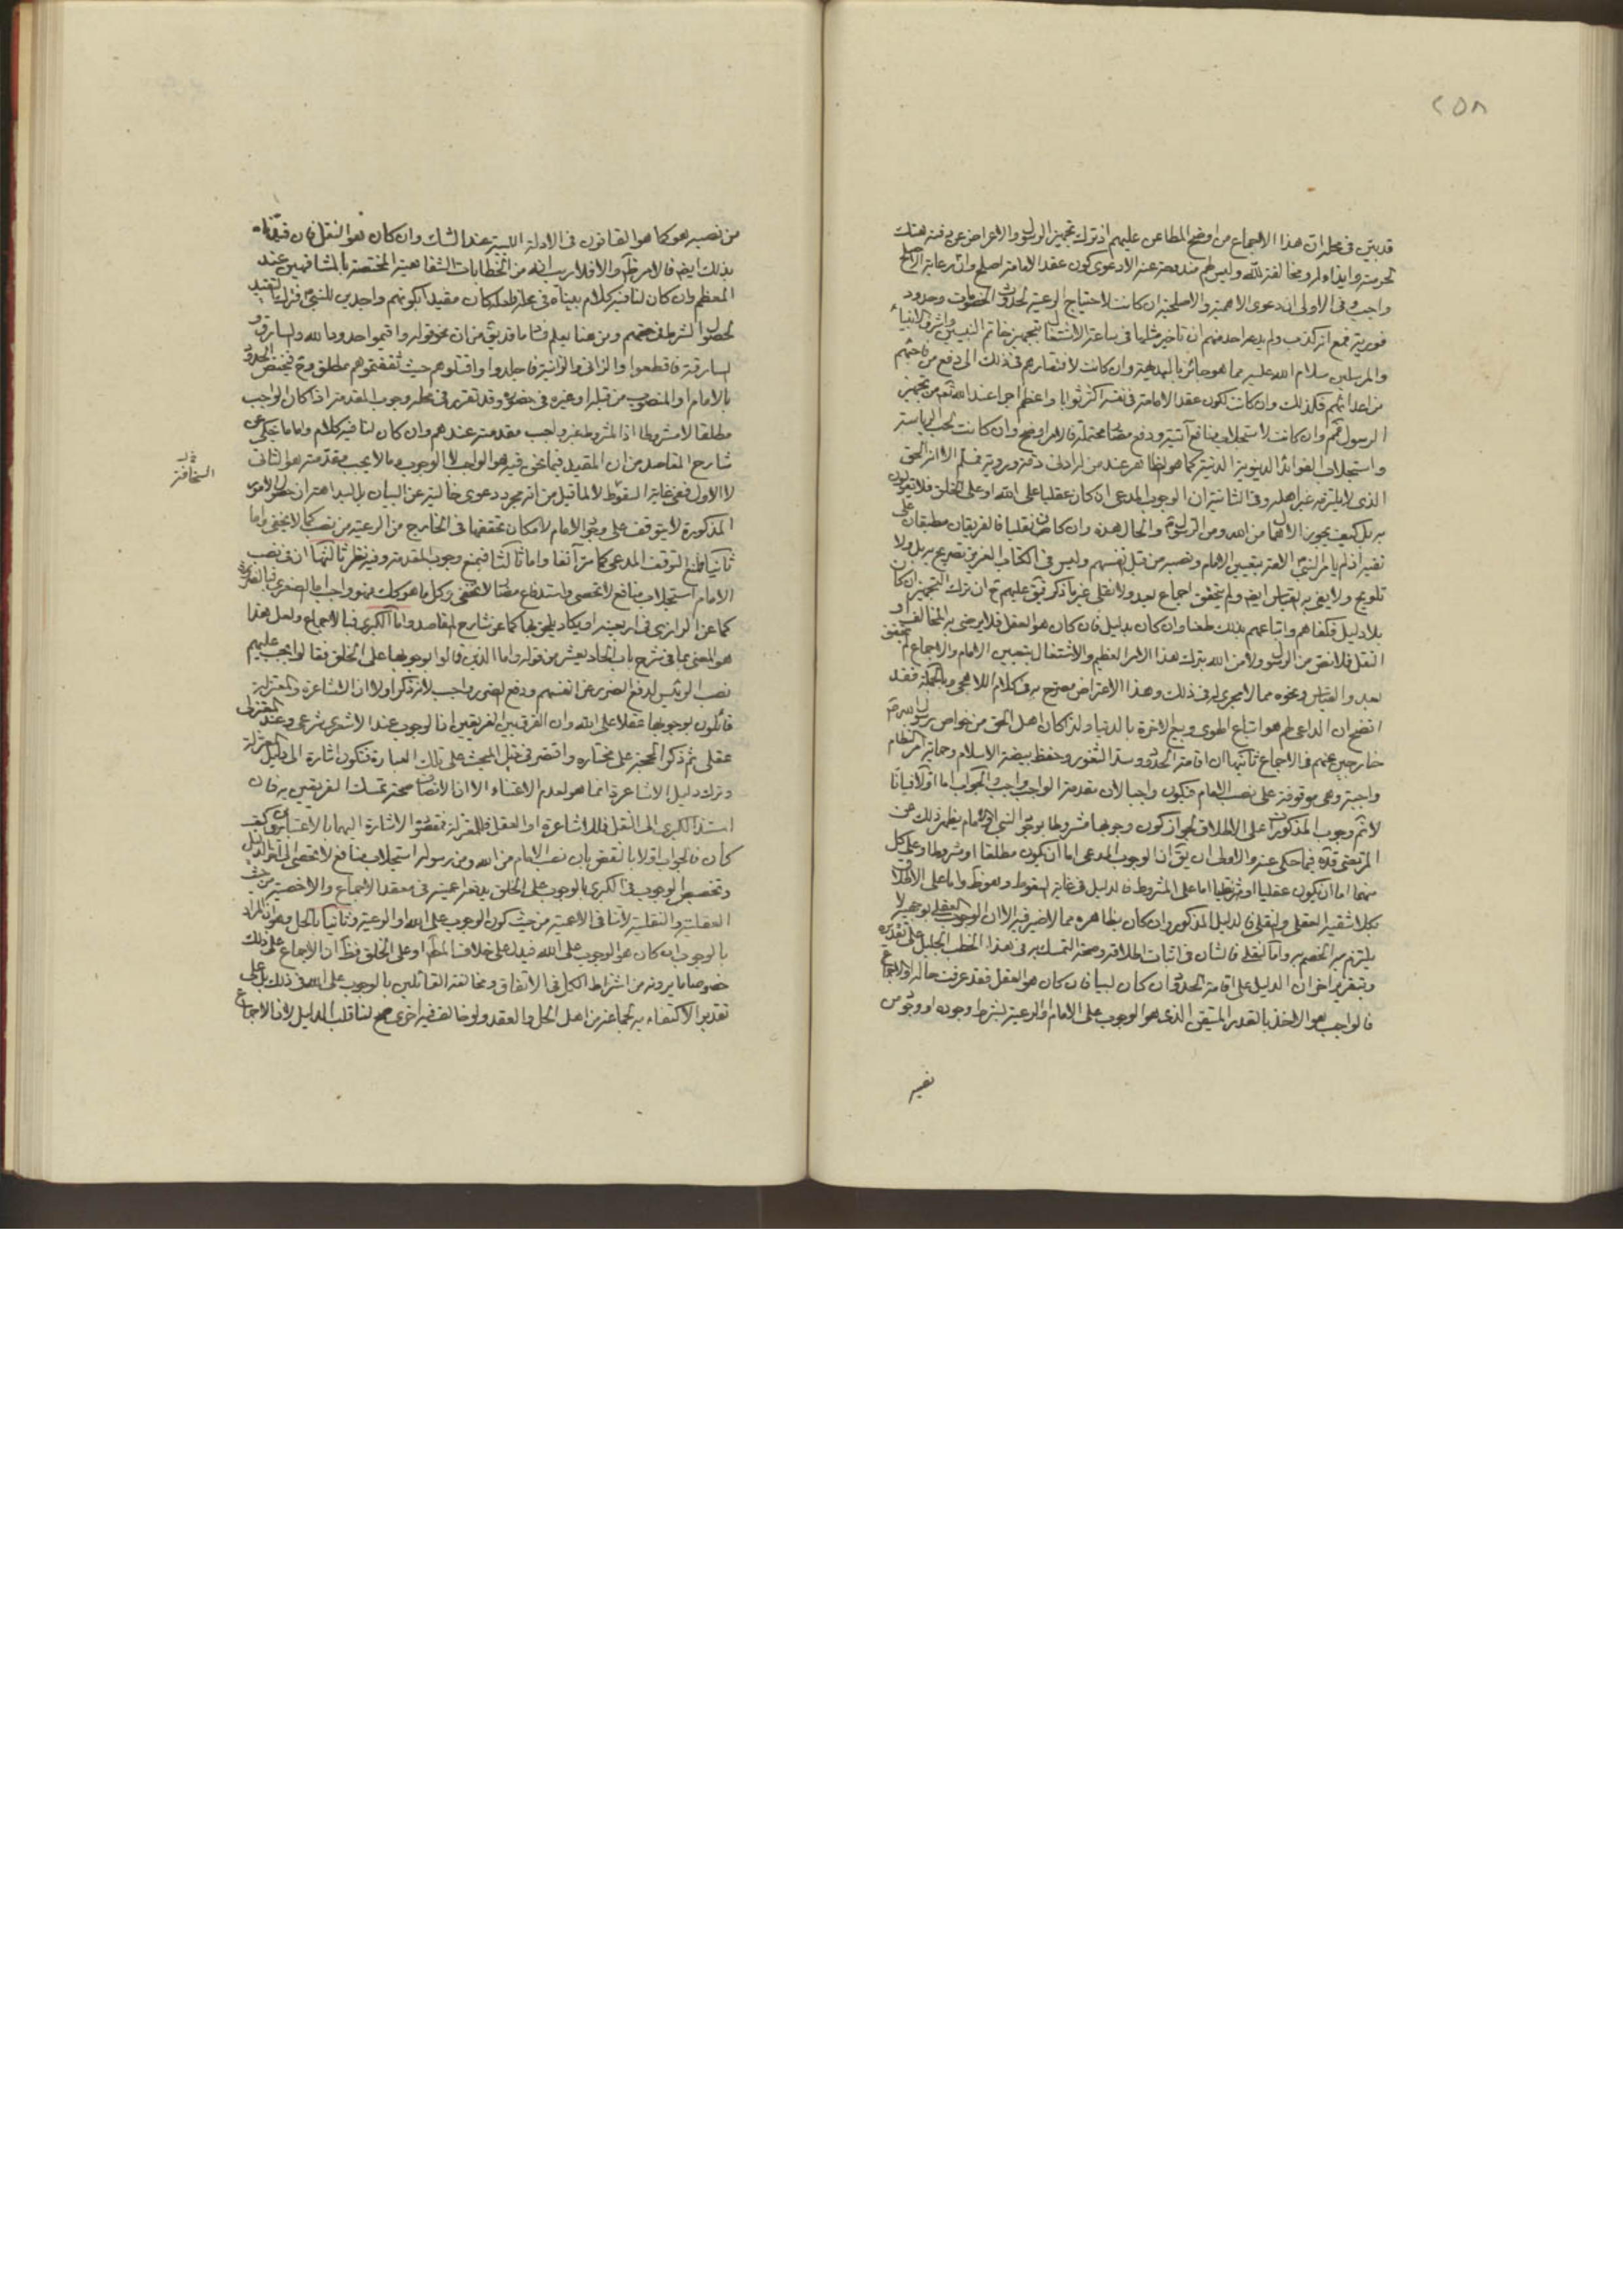 ٢٥٨
قد بين فى محله ان هذا الاجماع من اوضح المطاعن عليهم اذ ترك تجهيز الرسول والاعراض عن دفنه هتك
لحرمته وايذاء له ومخالفة لله وليس لهم مندوحة عنه الا دعوى كون عقد الامامة اصلح وان رعاية الاصلح
واجب وفى الاولى ان دعوى الاهمية والاصلحية ان كانت لاحتياج الرعية لحدوث الخصومات وحدود
فورية فمع انه كذب ولم يدع احد منهم ان تاخير مثلها فى ساعة الاشتغال بتجهيز خاتم النبيين واشرف الانبياء
والمرسلين سلام الله عليه مما هو جائز بالبديهة وان كانت لافتقارهم فى ذلك الى دفع من
من اعدائهم فكذلك وان كانت لكون عقد الامامة فى نفسه اكثر ثوابا واعظم اجرا عند الله من تجهيز
الرسول وان كانت لاستجلاب منافع آتية ودفع مضار محتملة فالامر اوضح وان كانت لحب الرياسة
واستجلاب الفوائد الدنيوية الدنية كما هو الظاهر عند من له ادنى دربة وروية فمسلم الا انه الحق
الذى لا يلتزم به غير اهله وفى الثانية ان الوجوب المدعى ان كان عقليا على الله او على الخلق فلا تقولون
به بل كيف يجوز الاهمال من الله ومن الرسول والحال هذه وان كان نقليا فالفريقان مطبقان على
نفيه اذ لم يامر النبى الامة بتعيين الامام ونصبه من قبل نفسهم وليس فى الكتاب العزيز تصريح به بل ولا
تلويح ولا يفى به القياس ايضا ولم يتحقق اجماع بعد ولا نقلى غير ما ذكر فبقى عليهم ح ان ترك التجهيز ان كان
بلا دليل فكفاهم واتباعهم بذلك طعنا وان كان بدليل فان كان هو العقل فلا يرضى به المخالف او
النقل فلا نص من الرسول ولا من الله بترك هذا الامر العظيم والاشتغال بتعيين الامام والاجماع لم يتحقق
بعد والقياس ونحوه مما لا مجرى له فى ذلك وهذا الاعتراض مصرح به فى كلام اللاهجى وبالجملة فقد
اتضح ان الداعى لهم هو اتباع الهوى وبيع الاخرة بالدنيا ولذا كان اهل الحق من خواص رسول الله
خارجين عنهم فى الاجماع ثانيها ان اقامة الحدود وسد الثغور وحفظ بيضة الاسلام وحماية
واجبة وهى موقوفة على نصب الامام فيكون واجبا لان مقدمة الواجب واجب والجواب اما اولا فبانا
لا نم وجوب المذكورات على الاطلاق لجواز كون وجوبها مشروطا بوجود النبى او الامام يظهر ذلك من
المرتضى قده فيما حكى عنه والاولى ان يق ان الوجوب المدعى اما ان يكون مطلقا او مشروطا وعلى كل
منهما اما ان يكون عقليا او شرعيا اما على المشروط فالدليل فى غاية السقوط وهو ظ واما على الاطلاق
بكلا شقيه العقلى والنقلى فالدليل المذكور وان كان بظاهره مما لا ضير فيه الا ان الوجوب العقلى بوجهيه لا
يلتزم به الخصم واما النقلى فالشان فى اثبات اطلاقه وصحة التمسك به فى هذا الخطب الجليل على تقديره
وبتقرير اخر ان الدليل على اقامة الحدود ان كان لبيا فان كان هو العقل فقد عرفت حاله او الاجماع
فالواجب هو الاخذ بالقدر المتيقن الذى هو الوجوب على الامام والرعية بشرط وجوده او وجود من
نصبه
من نصبه هو كما هو القانون فى الادلة اللبية عند الشك وان كان هو النقل فان
بذلك ايضا فالامر ظ والا فلا ريب انه من الخطابات الشفاهية المختصة بالمشافهين عند
المعظم وان كان لنا فيه كلام بيناه فى محله فلعله كان مقيدا بكونهم واجدين للنبى فترك التقييد
لحصول الشرط فى حقهم ومن هنا يعلم فساد ما قد يق من ان نحو قوله واقيموا حدود الله والسارق و
السارقة فاقطعوا والزانى والزانية فاجلدوا واقتلوهم حيث ثقفتموهم مطلق فلا تختص الحدود
بالامام او المنصوب من قبله او غيره فى حضوره وقد تقرر فى محله وجوب المقدمة اذا كان الواجب
مطلقا لا مشروطا اذ المشروط غير واجب مقدمته عندهم وان كان لنا فيه كلام واما ما حكى عن
شارح المقاصد من ان المقيد فيما نحن فيه هو الواجب لا الوجوب وما لا يجب مقدمته هو الثانى
لا الاول ففى غاية السقوط لا لما قيل من انه مجرد دعوى خالية عن البيان بل لبداهة ان حصول الامور
المذكورة لا يتوقف على وجود الامام لامكان تحققها فى الخارج من الرعية من نصب كما لا يخفى واما
ثانيا فلمنع التوقف المدعى كما مر آنفا واما ثالثا فبمنع وجوب المقدمة وفيه نظر ثالثها ان فى نصب
الامام استجلاب منافع لا تحصى واستدفاع مضار لا تخفى وكل ما هو كذلك فهو واجب اما الصغرى فبالضرورة
كما عن الرازى فى اربعينه او يكاد يلحق بها كما عن شارح المقاصد واما الكبرى فبالاجماع ولعل هذا
هو المعنى بما فى شرح باب الحادى عشر من قوله واما الذين قالوا بوجوبها على الخلق فقالوا يجب عليهم
نصب الرئيس لدفع الضرر عن انفسهم ودفع الضرر واجب لانه ذكر اولا ان الاشاعرة والمعتزلة
قائلون بوجوبها عقلا على الله وان الفرق بين الفريقين ان الوجوب عند الاشعرى شرعى وعند المعتزلى
عقلى ثم ذكر الحجة على مختاره واقتصر فى نقل المبحث على تلك العبارة فتكون اشارة الى دليل المعتزلة
وترك دليل الاشاعرة انما هو لعدم الاعتناء الا ان الانصاف صحة تمسك الفريقين به فان
استند الكبرى الى النقل فللاشاعرة او العقل فللمعتزلة فمقصود الاشارة اليهما بالاعتبارين وكيف
كان فالجواب اولا بالنقض بان نصب الامام من الله ومن رسوله استجلاب منافع لا تحصى الى آخر الدليل
وتخصيص الوجوب فى الكبرى بالوجوب على الخلق يدفعه عمومه فى معقد الاجماع والاخصية من حيث
العقلية والنقلية لا تنافى الاعمية من حيث كون الوجوب على الله او الرعية وثانيا بالحل وهو ان المراد
بالوجوب ان كان هو الوجوب على الله فيدل على خلاف المدعى او على الخلق فظ ان الاجماع على ذلك
خصوصا ما يرونه من اشتراط الكل فى الاتفاق ومخالفة القائلين بالوجوب على الله فى ذلك بل على
تقدير الاكتفاء بجماعة من اهل الحل والعقد ولو خالف فيه اخرى صح لنا قلب الدليل لانا الاجماع